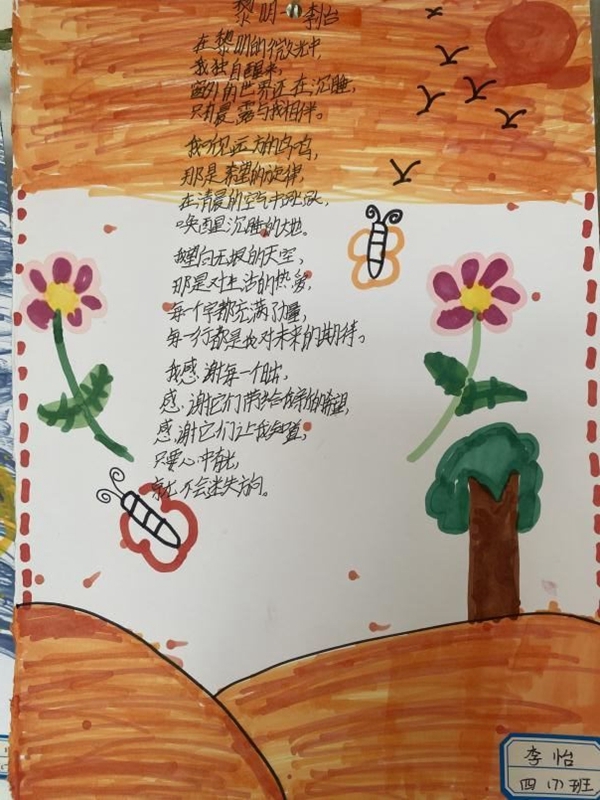 黎明-李怡
在黎明的微光中,
我独自醒来,
窗外的世界还在沉睡,
只有晨露与我相伴。
我听见远方的鸟鸣,
那是希望的旋律,
在清晨的空气中
唤醒沉睡的大地。
我望向无垠的天空,
那是对生活的热爱,
每一个字都充满了力量,
每一行都是我对未来的期待。
我感谢每一个
感谢它们带给我新的希望,
感谢它们让我知道,
只要心中有光,
就不会迷失方向。
李怡
四(1)班